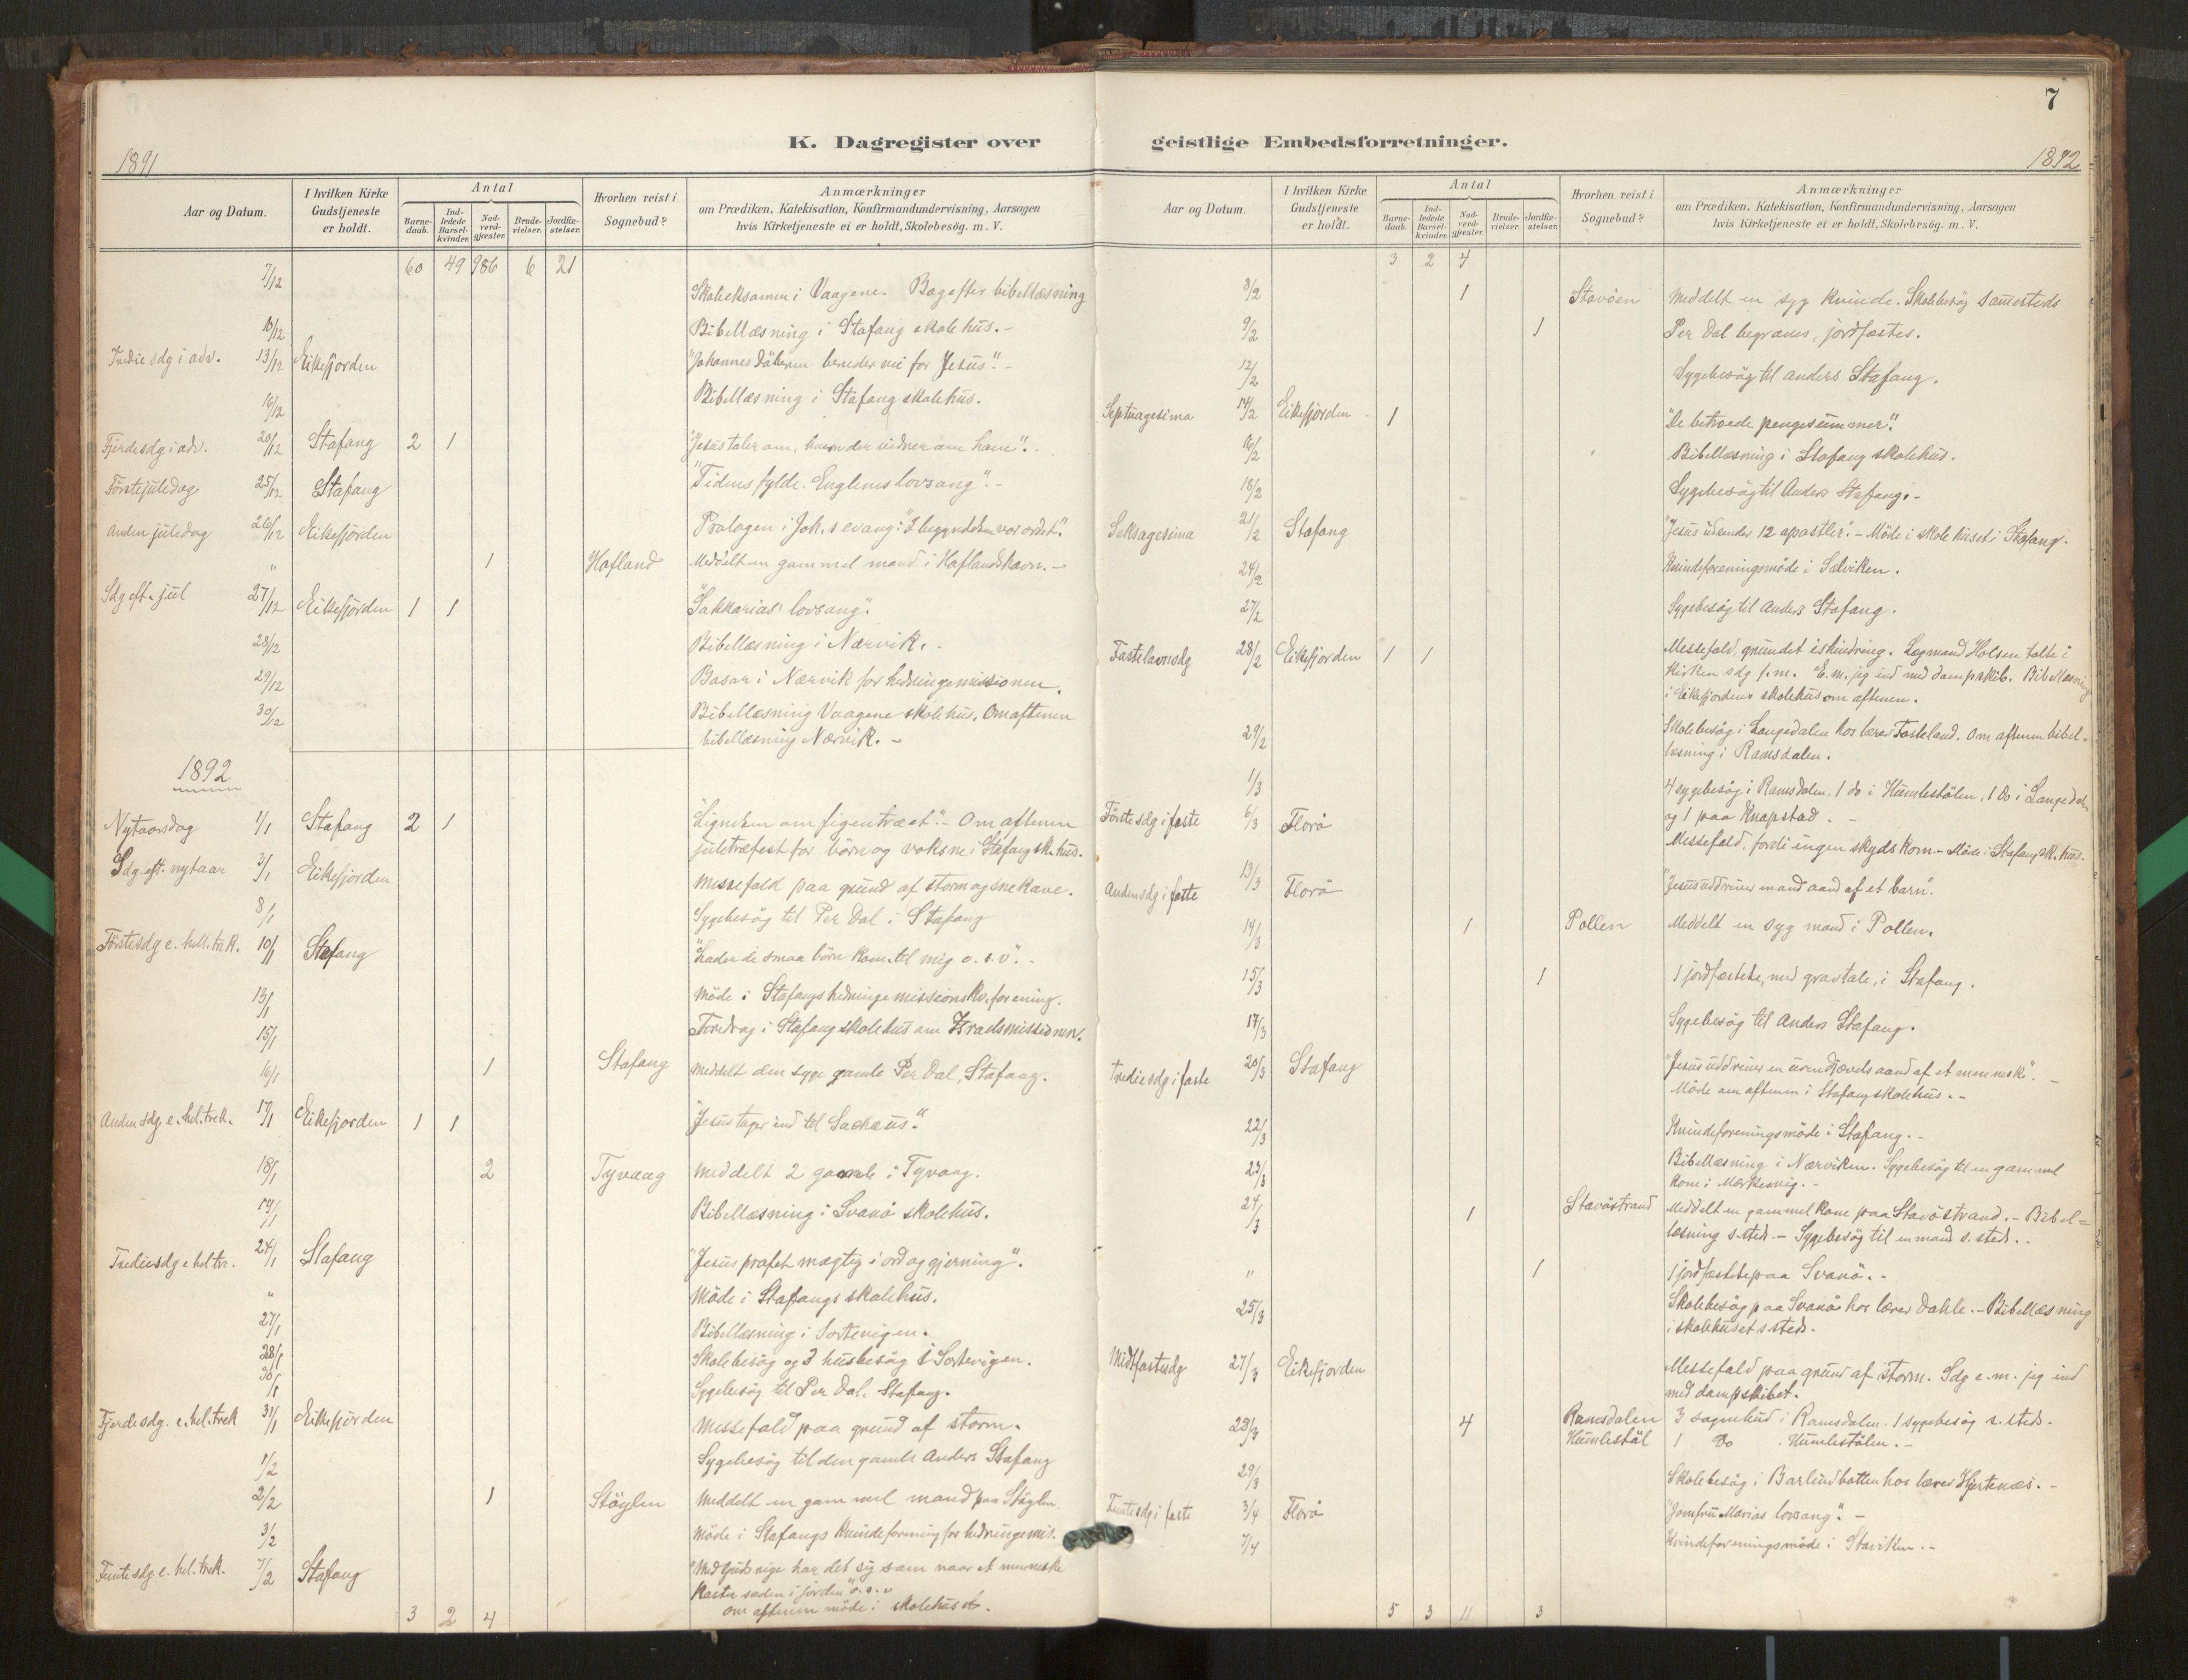 7
K. Dagregister over geistlige Embedsforretninger.
1891
1892
Aar og Datum.
I hvilken Kirke Gudstjeneste er holdt.
Antal
Barnedaab.
Indledede Barselkvinder.
Nadverdgjæster.
Brudevielser.
Jordfæstelser.
Hvorhen reist i Sognebud?
Anmærkninger
om Prædiken, Katekisation, Konfirmandundervisning, Aarsagen
hvis Kirketjeneste ei er holdt, Skolebesög. m. V.
60 49 986 6 21
7/12 Skoleeksamen i Vaagene. Bagefter bibellæsning
10/12 Bibellæsning i Stafang skolehus.-
Tredie sdg i adv. 13/12 Eikefjorden "Johannes Döberen bereder vei for Jesus".-
16/12 Bibellæsning i Stafang skolehus.
Fjerde sdg i adv. 20/12 Stafang 2 1 "Jesus taler om, hvem der vidner om ham".-
Förste juledag 25/12 Stafang "Tidens fylde. Englenes lovsang".-
Anden juledag 26/12 Eikefjorden Prologen i Joh.s evang: "I begyndelsen var ordet".
" 1 Hofland Meddelt en gammel mand i Haflandshavn.-
Sdg eft. jul 27/12 Eikefjorden 1 1 "Sakkarias' lovsang".
28/12 Bibellæsning i Nærvik.-
29/12 Basar i Nærvik for hedningemissionen.
30/12 Bibellæsning Vaagene skolehus. Om aftenen
bibellæsning Nærvik.-
1892
Nytaarsdag 1/1 Stafang 2 1 "Lignelsen om figentræet".- Om aftenen
juletræfest for börn og voksne i Stafang sk.hus.
Sdg eft. nytaar 3/1 Eikefjorden Messefald paa grund af storm og snekave.
8/1 Sygebesög til Per Dal i Stafang
Förste sdg e. hell. trek. 10/1 Stafang "Lader de smaa börn kom. til mig o.s.v".-
13/1 Möde i Stafangs hedningemissions kv.forening.
15/1 Foredrag i Stafang skolehus om Israelsmissionen.
16/1 1 Stafang Meddelt den syge gamle Per Dal, Stafang.
Anden sdg. e. hel. trek. 17/1 Eikefjorden 1 1 "Jesus tager ind til Sackæus".
18/1 2 Tyvaag Meddelt 2 gamle i Tyvaag.
19/1 Bibellæsning i Svanö skolehus.
Tredie sdg e hel tr. 24/1 Stafang "Jesus profet mægtig i ord og gjerning".
" Möde i Stafangs skolehus.
27/1 Bibellæsning i Sortevigen.
28/1 Skolebesög og 3 husbesög i Sortevigen.
30/1 Sygebesög til Per Dal, Stafang.
Fjerde sdg. e. hel. trek 31/1 Eikefjorden Messefald paa grund af storm.
1/2 Sygebesög til den gamle Anders Stafang
2/2 1 Stöylen Meddelt en gammel mand paa Stöylen.
3/2 Möde i Stafangs kvindeforening for hedningemis.
Femte sdg e. hel. trek. 7/2 Stafang "Med Guds rige har det sig som naar et menneske
kaster sæden i jorden" o.s.v
om aftenen möde i skolehuset.
3 2 4
Aar og Datum.
I hvilken Kirke Gudstjeneste er holdt.
Antal
Barnedaab.
Indledede Barselkvinder.
Nadverdgjæster.
Brudevielser.
Jordfæstelser.
Hvorhen reist i Sognebud?
Anmærkninger
om Prædiken, Katekisation, Konfirmandundervisning, Aarsagen
hvis Kirketjeneste ei er holdt, Skolebesög. m. V.
3 2 4
8/2 1 Stavöen Meddelt en syg kvinde. Skolebesög sammesteds
9/2 1 Per Dal begraves, jordfæstes.
12/2 Sygebesög til Anders Stafang.
Septuagesima 14/2 Eikefjorden 1 "De betroede pengesummer".
16/2 Bibellæsning i Stafang skolehus.
18/2 Sygebesög til Anders Stafang.-
Seksagesima 21/2 Stafang "Jesus udsender 12 apostler".- Möde i skolehuset i Stafang.
24/2 Kvindeforeningsmöde i Sælviken.
27/2 Sygebesög til Anders Stafang.
Fastelavnsdg 28/2 Eikefjorden 1 1 Messefald, grundet ishindring. Lægmand Holsen talte i
kirken sdg f.m. E.m. jeg ind med dampskib. Bibellæsning
i Eikefjordens skolehus om aftenen.
29/2 Skolebesög i Langedalen hos lærer Fosteland. Om aftenen bibel=
læsning i Ramsdalen.
1/3 4 sygebesög i Ramsdalen, 1 do i Humlestölen, 1 do i Langedalen
og 1 paa Knapstad.-
Förste sdg i faste 6/3 Florö Messefald, fordi ingen skyds kom.- Möde i Stafang sk.hus.
Anden sdg i faste 13/3 Florö "Jesus uddriver en ond aand af et barn".
14/3 1 Pollen Meddelt en syg mand i Pollen.
15/3 1 1 jordfæstelse, med gravtale, i Stafang.
17/3 Sygebesög til Anders Stafang.
Tredie sdg i faste 20/3 Stafang "Jesus uddriver en uren djævels aand af et menneske".-
Möde om aftenen i Stafang skolehus.-
22/3 Kvindeforeningsmöde i Stafang.-
23/3 Bibellæsning i Nærviken. Sygebesög til en gammel
kone i Mærkesvig.-
24/3 1 Stavöstrand Meddelt en gammel kone paa Stavöstrand.- Bibel=
læsning s.sted.- Sygebesög til en mand s. sted.-
" 1 1 jordfæstelse paa Svanö.-
25/3 Skolebesög paa Svanö hos lærer Dahle.- Bibellæsning
i skolehuset s.sted.
Midtfastesdg 27/3 Eikefjorden Messefald paa grund af storm. Sdg e.m. jeg ind
med dampskibet.
28/3 4 Ramsdalen 3 sognebud i Ramsdalen. 1 sygebesög s. sted.-
Humlestöl 1 do Humlestölen.-
29/3 Skolebesög i Barlindbotten hos lærer Hjertenæs.-
Femte sdg i faste 3/4 Florö "Jomfru Marias lovsang".-
7/4 Kvindeforeningsmöde i Staviken.-
5 3 11 3